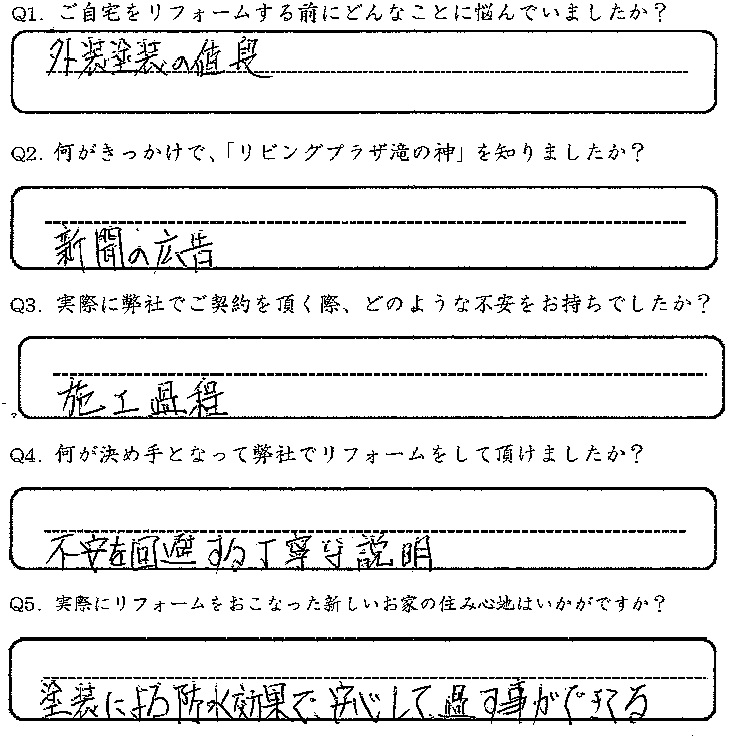 Q1. ご自宅をリフォームする前にどんなことに悩んでいましたか？
外装塗装の値段
Q2. 何がきっかけで、「リビングプラザ滝の神」を知りましたか？
新聞の広告
Q3. 実際に弊社でご契約を頂く際、どのような不安をお持ちでしたか？
施工過程
Q4. 何が決め手となって弊社でリフォームをして頂けましたか？
不安を回避する丁寧な説明
Q5. 実際にリフォームをおこなった新しいお家の住み心地はいかがですか？
塗装による防水効果で、安心して過す事ができてる